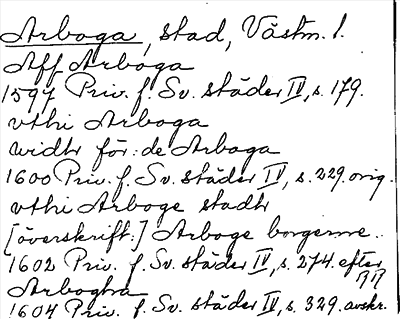 Arboga, stad, Västm. l.
Aff Arboga
1597 Priv. f. Sv. städer IV, s. 179.
vthi Arboga
widhr för: de Arboga
1600 Priv. f. Sv. städer IV, s. 229. orig.
vthi Arboge stadh
[överskrift:] Arboge borgerne..
1602 Priv. f. Sv. städer IV, s. 274. efter RR
Arbogha
1604 Priv. f. Sv. städer IV, s. 329. avskr.